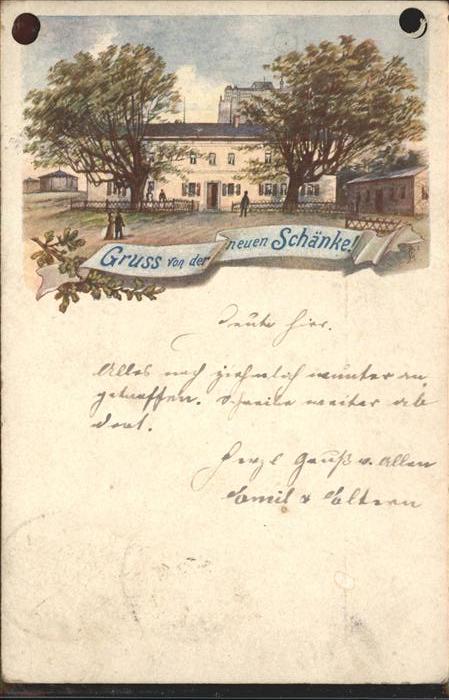 Gruss von der neuen Schänke!
Heute hier.
Alles noch ziehmlich munter an
getroffen. Schreibe weiter ab
dort.
Herzl Gruß v. Allen
Emil & Eltern